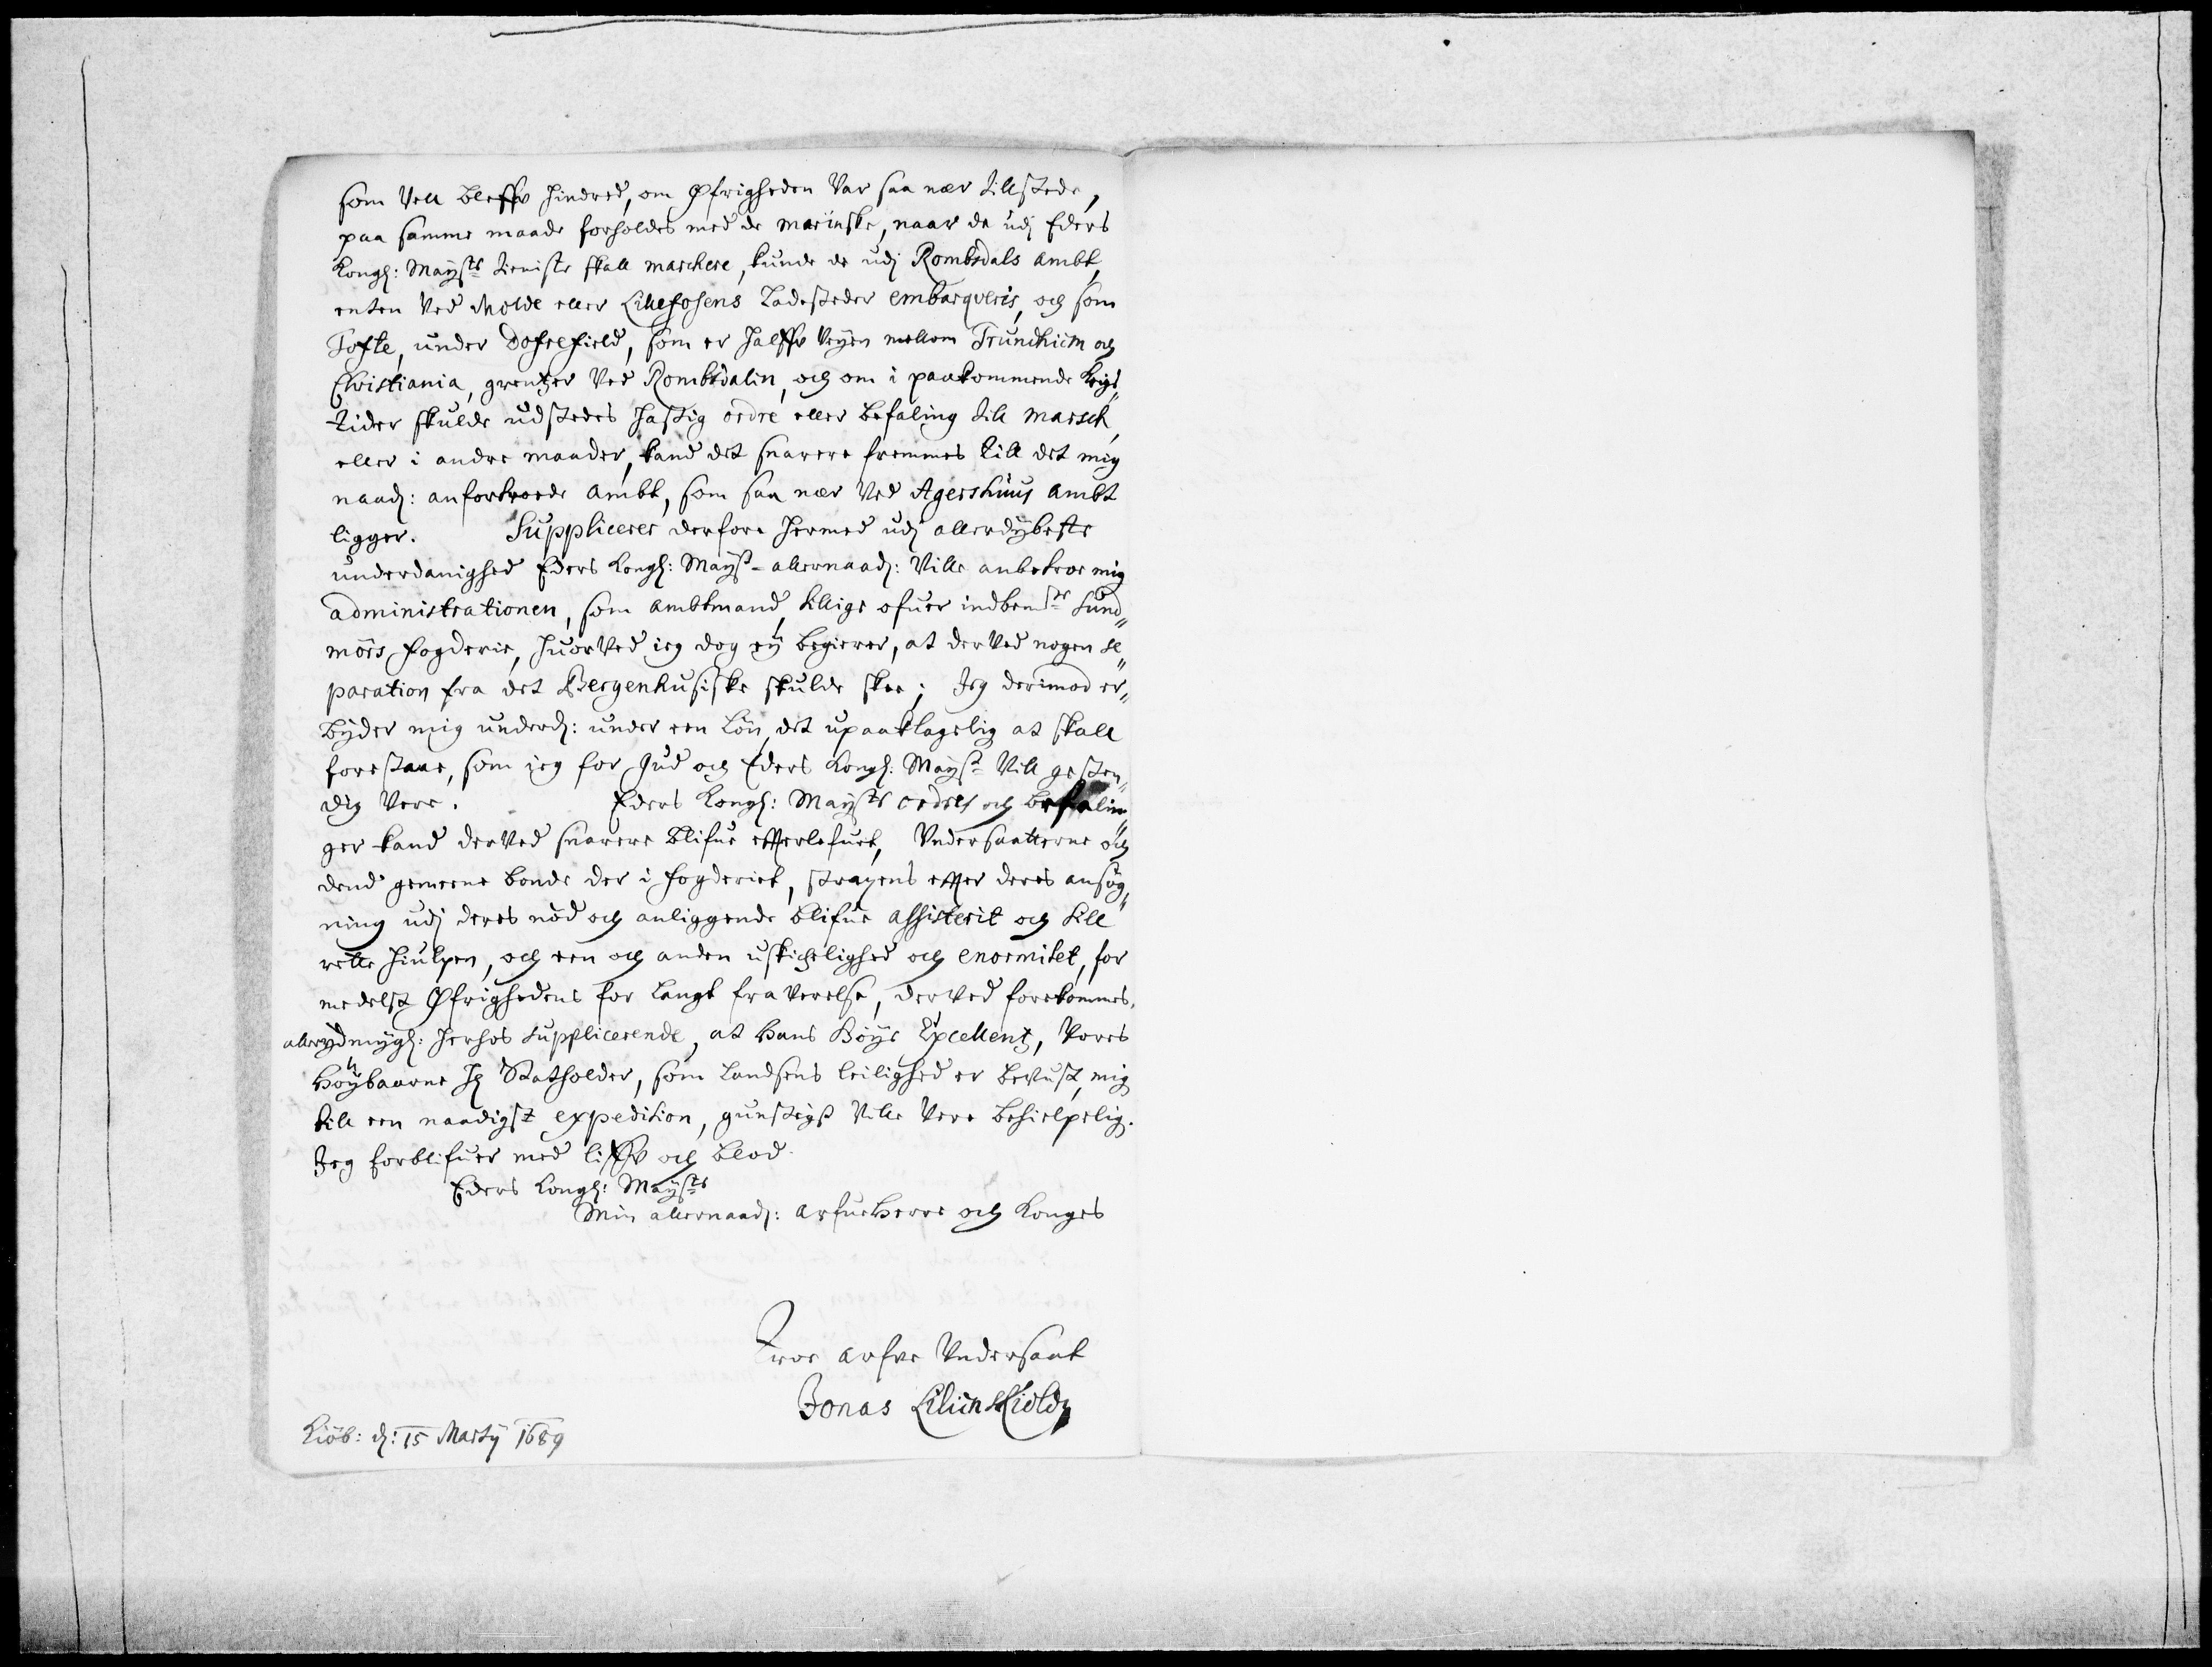 som Vell bleffv hindred, om Øfrigheden Var saa nær tillstede,
paa samme maade forholdes med de mærinske, naar de udj Eders
Kongl: Mayst:s tieniste skall marchere, kunde de udj Rombsdals Ambt,
enten Ved Molde eller Lillefosens Ladesteder embarqveris, och som
Tofte, under Dofrefield, som er halffv Veyen mellom Trundhiem och
Christiania, grentzer Ved Rombsdalin, och om i paakommende Krigs„
tider skulde udstedes hastig ordre eller befaling till March,
eller i andre maader, kand det snarere fremmes till det mig
naad: anfortroede Ambt, som saa nær Ved Agershuus Ambt
ligger. Supplicerer derfore hermed udj allerdybeste
underdanighed Eders Kongl: Mayst: allernaad: Ville anbetroe mig
administrationen, som Ambtmand, tillige ofuer indbem:te Sund„
mörs fogderie, huorVed ieg dog ey begierer, at derVed nogen se„
paration fra det Bergenhusiske skulde skee; Jeg derimod er„
byder mig underd: under een Lön, det upaaklagelig at skall
forestaae, som jeg for Gud och Eders Kongl: Mayst: Vill gesten„
dig Vere. Eders Kongl: Mayst:s ordres och befalin„
ger kand derVed snarere blifue efferlefuet, Vndersaatterne och
dend gemeene bonde der i fogderiet, straxens effter deres ansøg„
ning udj deres nöd och anliggende blifue assisterit och till
rette hiulpen, och een och anden uskickelighed och enormitet, for
medelst Øfrighedens for langt fraVerelse, derVed forekommes.
allerydmygl: herhos supplicerende, at Hans Höye Excellentz, Vores
Höybaarne Hr Statholder, som Landsens leilighed er bevust, mig
till een naadigst expedition, gunstigst Ville Vere behielpelig.
Jeg forblifuer med liffv och blod
Eders Kongl: Mayst:s
Min allernaad: ArfueHerre och Konges
Troe Arfve Vndersaat
Jonas Lilienskiold
Kiöb: d: 15 Martÿ 1689